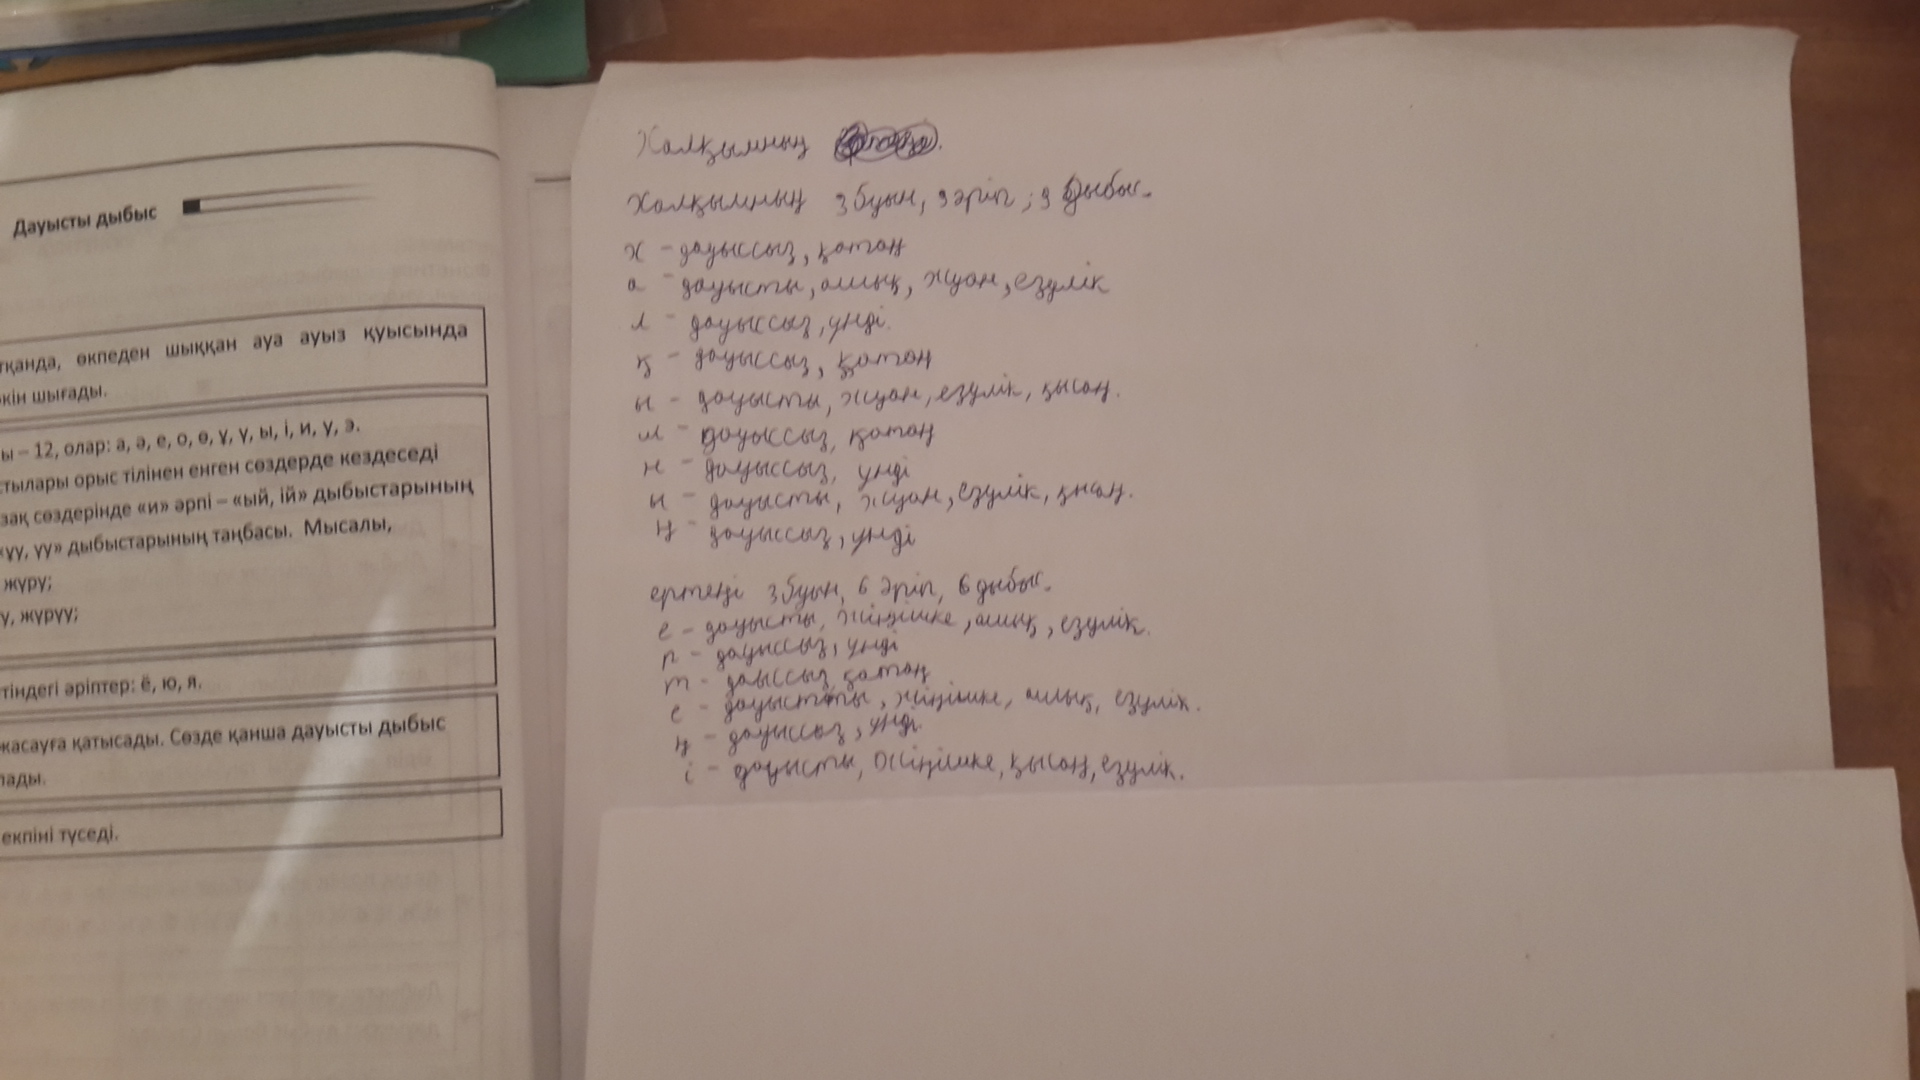 Дауысты дыбыс
тқанда, өкпеден шыққан ауа ауыз қуысында
кін шығады.
ы – 12, олар: а, ә, е, о, ө, ұ, ү, ы, і, и, у, э.
стылары орыс тілінен енген сөздерде кездеседі
зақ сөздерінде «и» әрпі – «ый, ій» дыбыстарының
«ұу, үу» дыбыстарының таңбасы. Мысалы,
жүру;
у, жүрүу;
тіндегі әріптер: ё, ю, я.
жасауға қатысады. Сөзде қанша дауысты дыбыс
лады.
екпіні түседі.
Халқымның
Халқымның 3 буын, 9 әріп; 9 дыбыс.
х - дауыссыз, қатаң
а - дауысты, ашық, жуан, езулік
л - дауыссыз, үнді.
қ - дауыссыз, қатаң
ы - дауысты, жуан, езулік, қысаң.
м - дауыссыз, қатаң
н - дауыссыз, үнді
ы - дауысты, жуан, езулік, қысаң.
ң - дауыссыз, үнді
ертеңі 3 буын, 6 әріп, 6 дыбыс.
е - дауысты, жіңішке, ашық, езулік.
р - дауыссыз, үнді
т - дауссыз қатаң
е - дауысты, жіңішке, ашық, езулік.
ң - дауыссыз, үнді.
і - дауысты, жіңішке, қысаң, езулік.